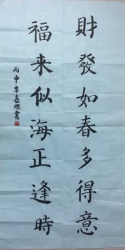 財發如春多得意
福来似海正逢時
丙申李嘉順書